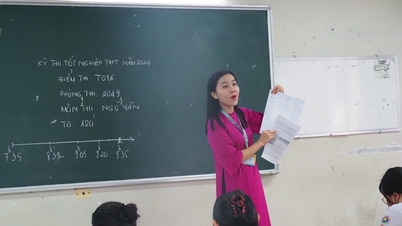 KỲ THI TỐT NGHIỆP THPT NĂM 2024
ĐIỂM THI
PHÒNG THI: 2049
MÔN THI: NGỮ VĂN
TG 120'
7 35 8 35 9 05 9 20 9 35